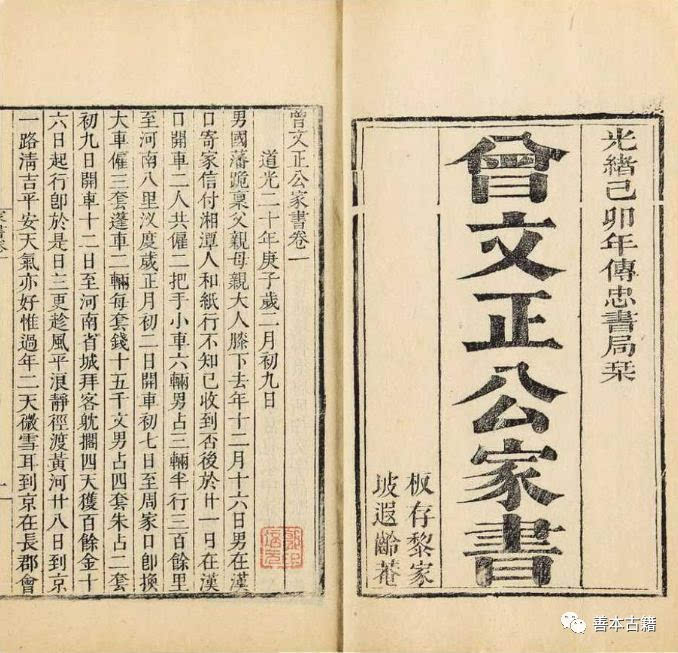 光緒己卯年傳忠書局栞
曾文正公家書
板存黎家
坡遐齡菴
曾文正公家書卷一
道光二十年庚子歲二月初九日
男國藩跪稟父親母親大人膝下去年十二月十六日男在漢
口寄家信付湘潭人和紙行不知已收到否後於廿一日在漢
口開車二人共僱二把手小車六輛男占三輛半行三百餘里
至河南八里汊度歲正月初二日開車初七日至周家口卽換
大車僱三套篷車二輛每套錢十五千文男占四套朱占二套
初九日開車十二日至河南省城拜客躭擱四天獲百餘金十
六日起行卽於是日三更趁風平浪靜徑渡黃河廿八日到京
一路清吉平安天氣亦好惟過年二天微雪耳到京在長郡會
善本古籍